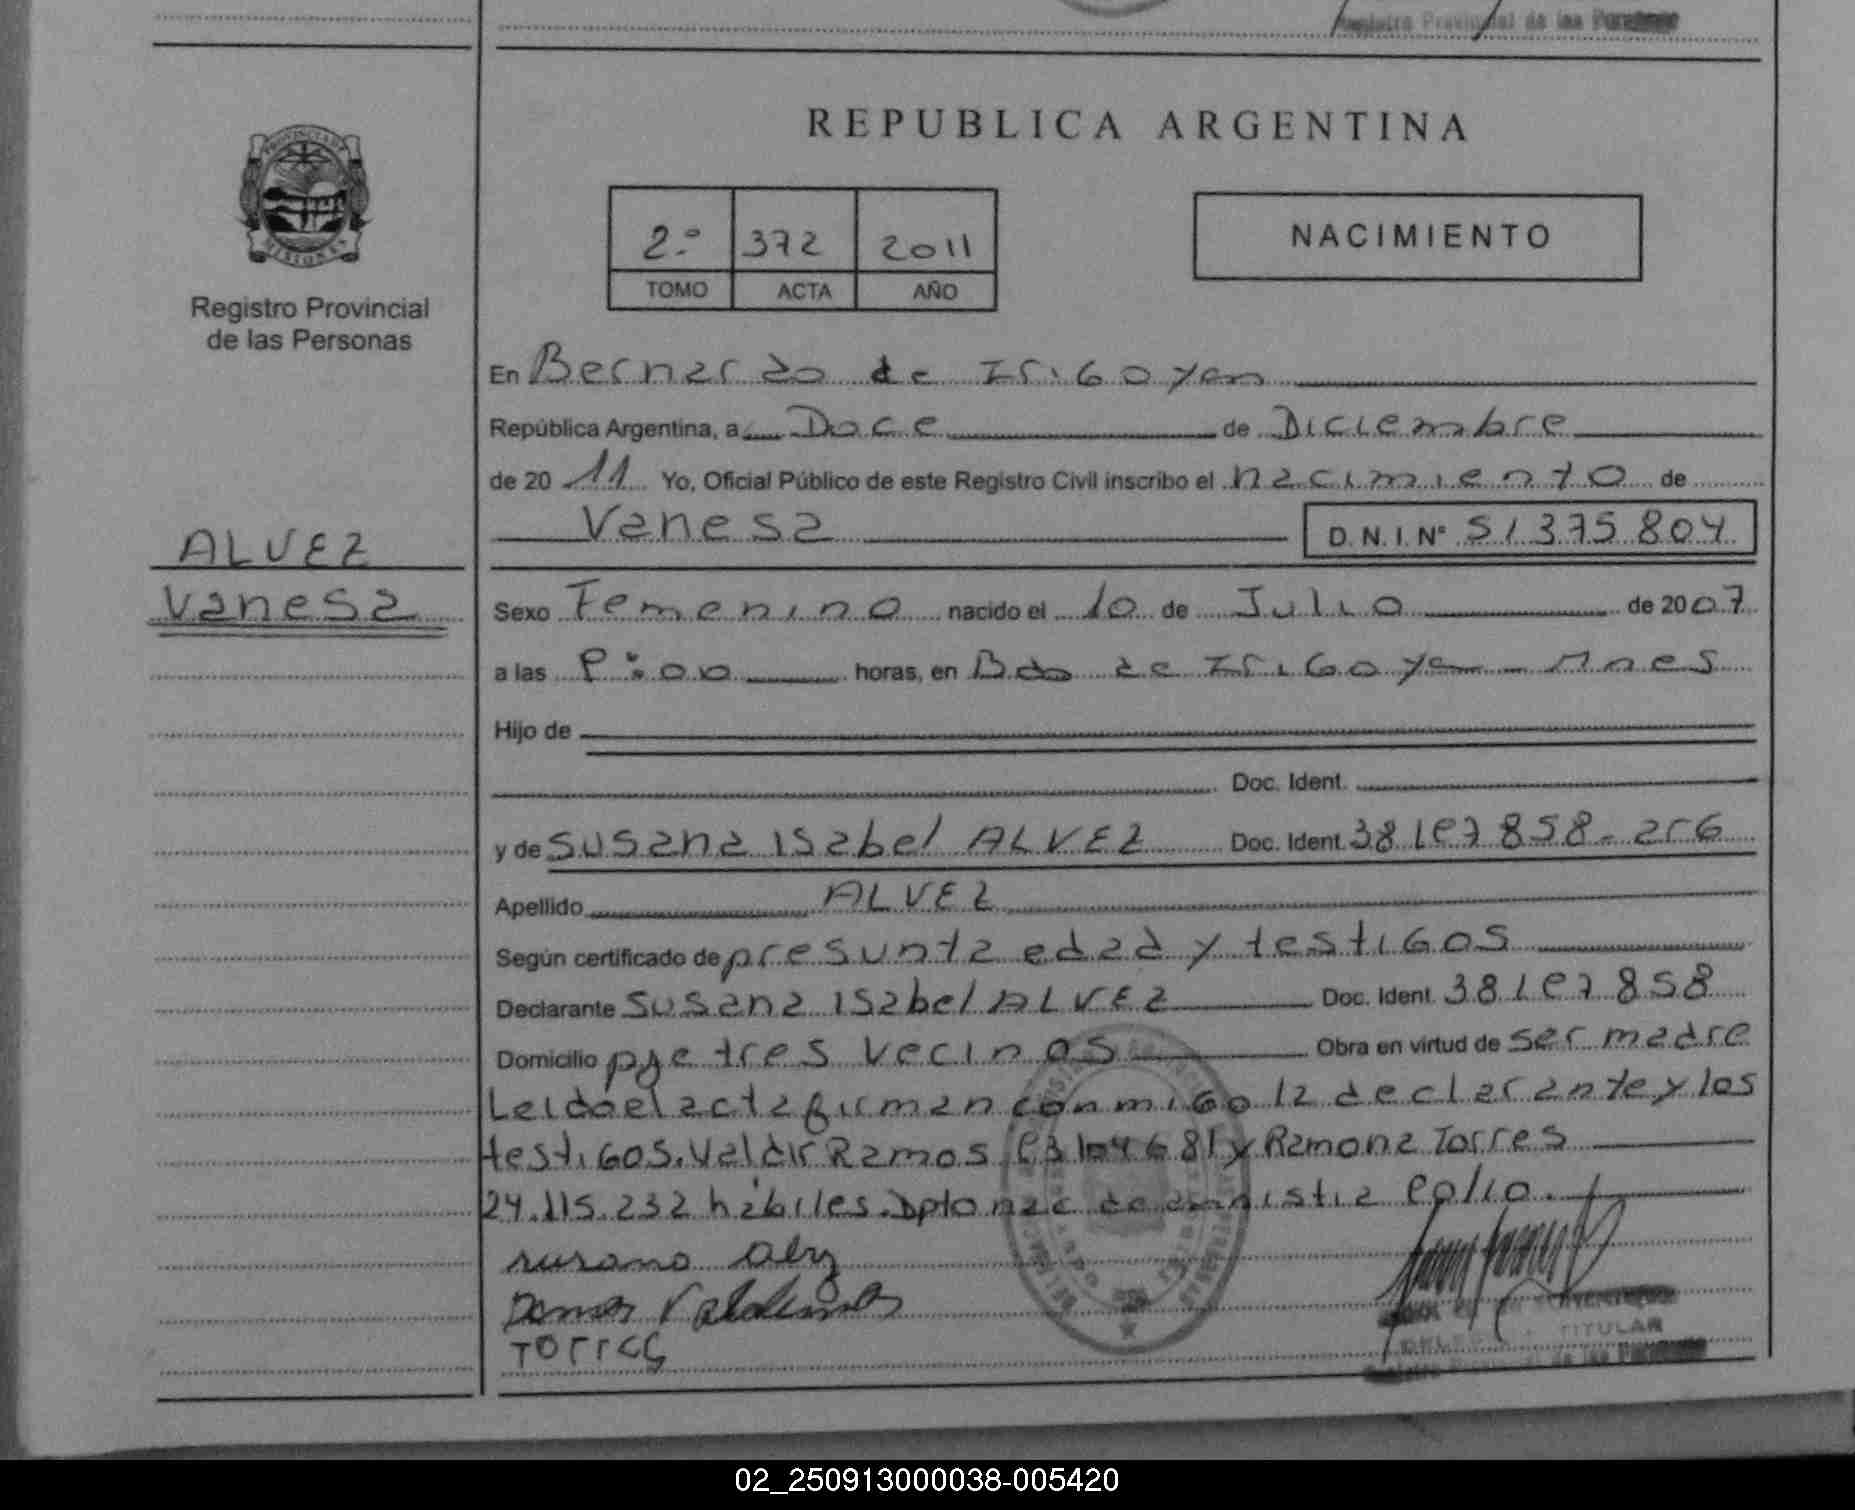 Registro Provincial de las Personas
REPUBLICA ARGENTINA
PROVINCIA DE
MISIONES
Registro Provincial
de las Personas
2º 372 2011
TOMO ACTA AÑO
NACIMIENTO
En Bernardo de Irigoyen
República Argentina, a Doce de Diciembre
de 2011 Yo, Oficial Público de este Registro Civil inscribo el nacimiento de
Vanesa D.N.I. Nº 51375804
ALVEZ
Vanesa
Sexo Femenino nacido el 10 de Julio de 2007
a las 8:00 horas, en Bdo de Irigoyen Mnes
Hijo de
Doc. Ident.
y de Susana Isabel ALVEZ Doc. Ident. 38187858-arg
Apellido ALVEZ
Según certificado de presunta edad y testigos
Declarante Susana Isabel ALVEZ Doc. Ident. 38187858
Domicilio pje tres vecinos Obra en virtud de ser madre
Leido el acta firman conmigo la declarante y los
testigos. Valdir Ramos y Ramona Torres
24.115.232 hábiles. Dpto nac de amnistia
Torres
TITULAR
Registro Provincial de las Personas
02_250913000038-005420